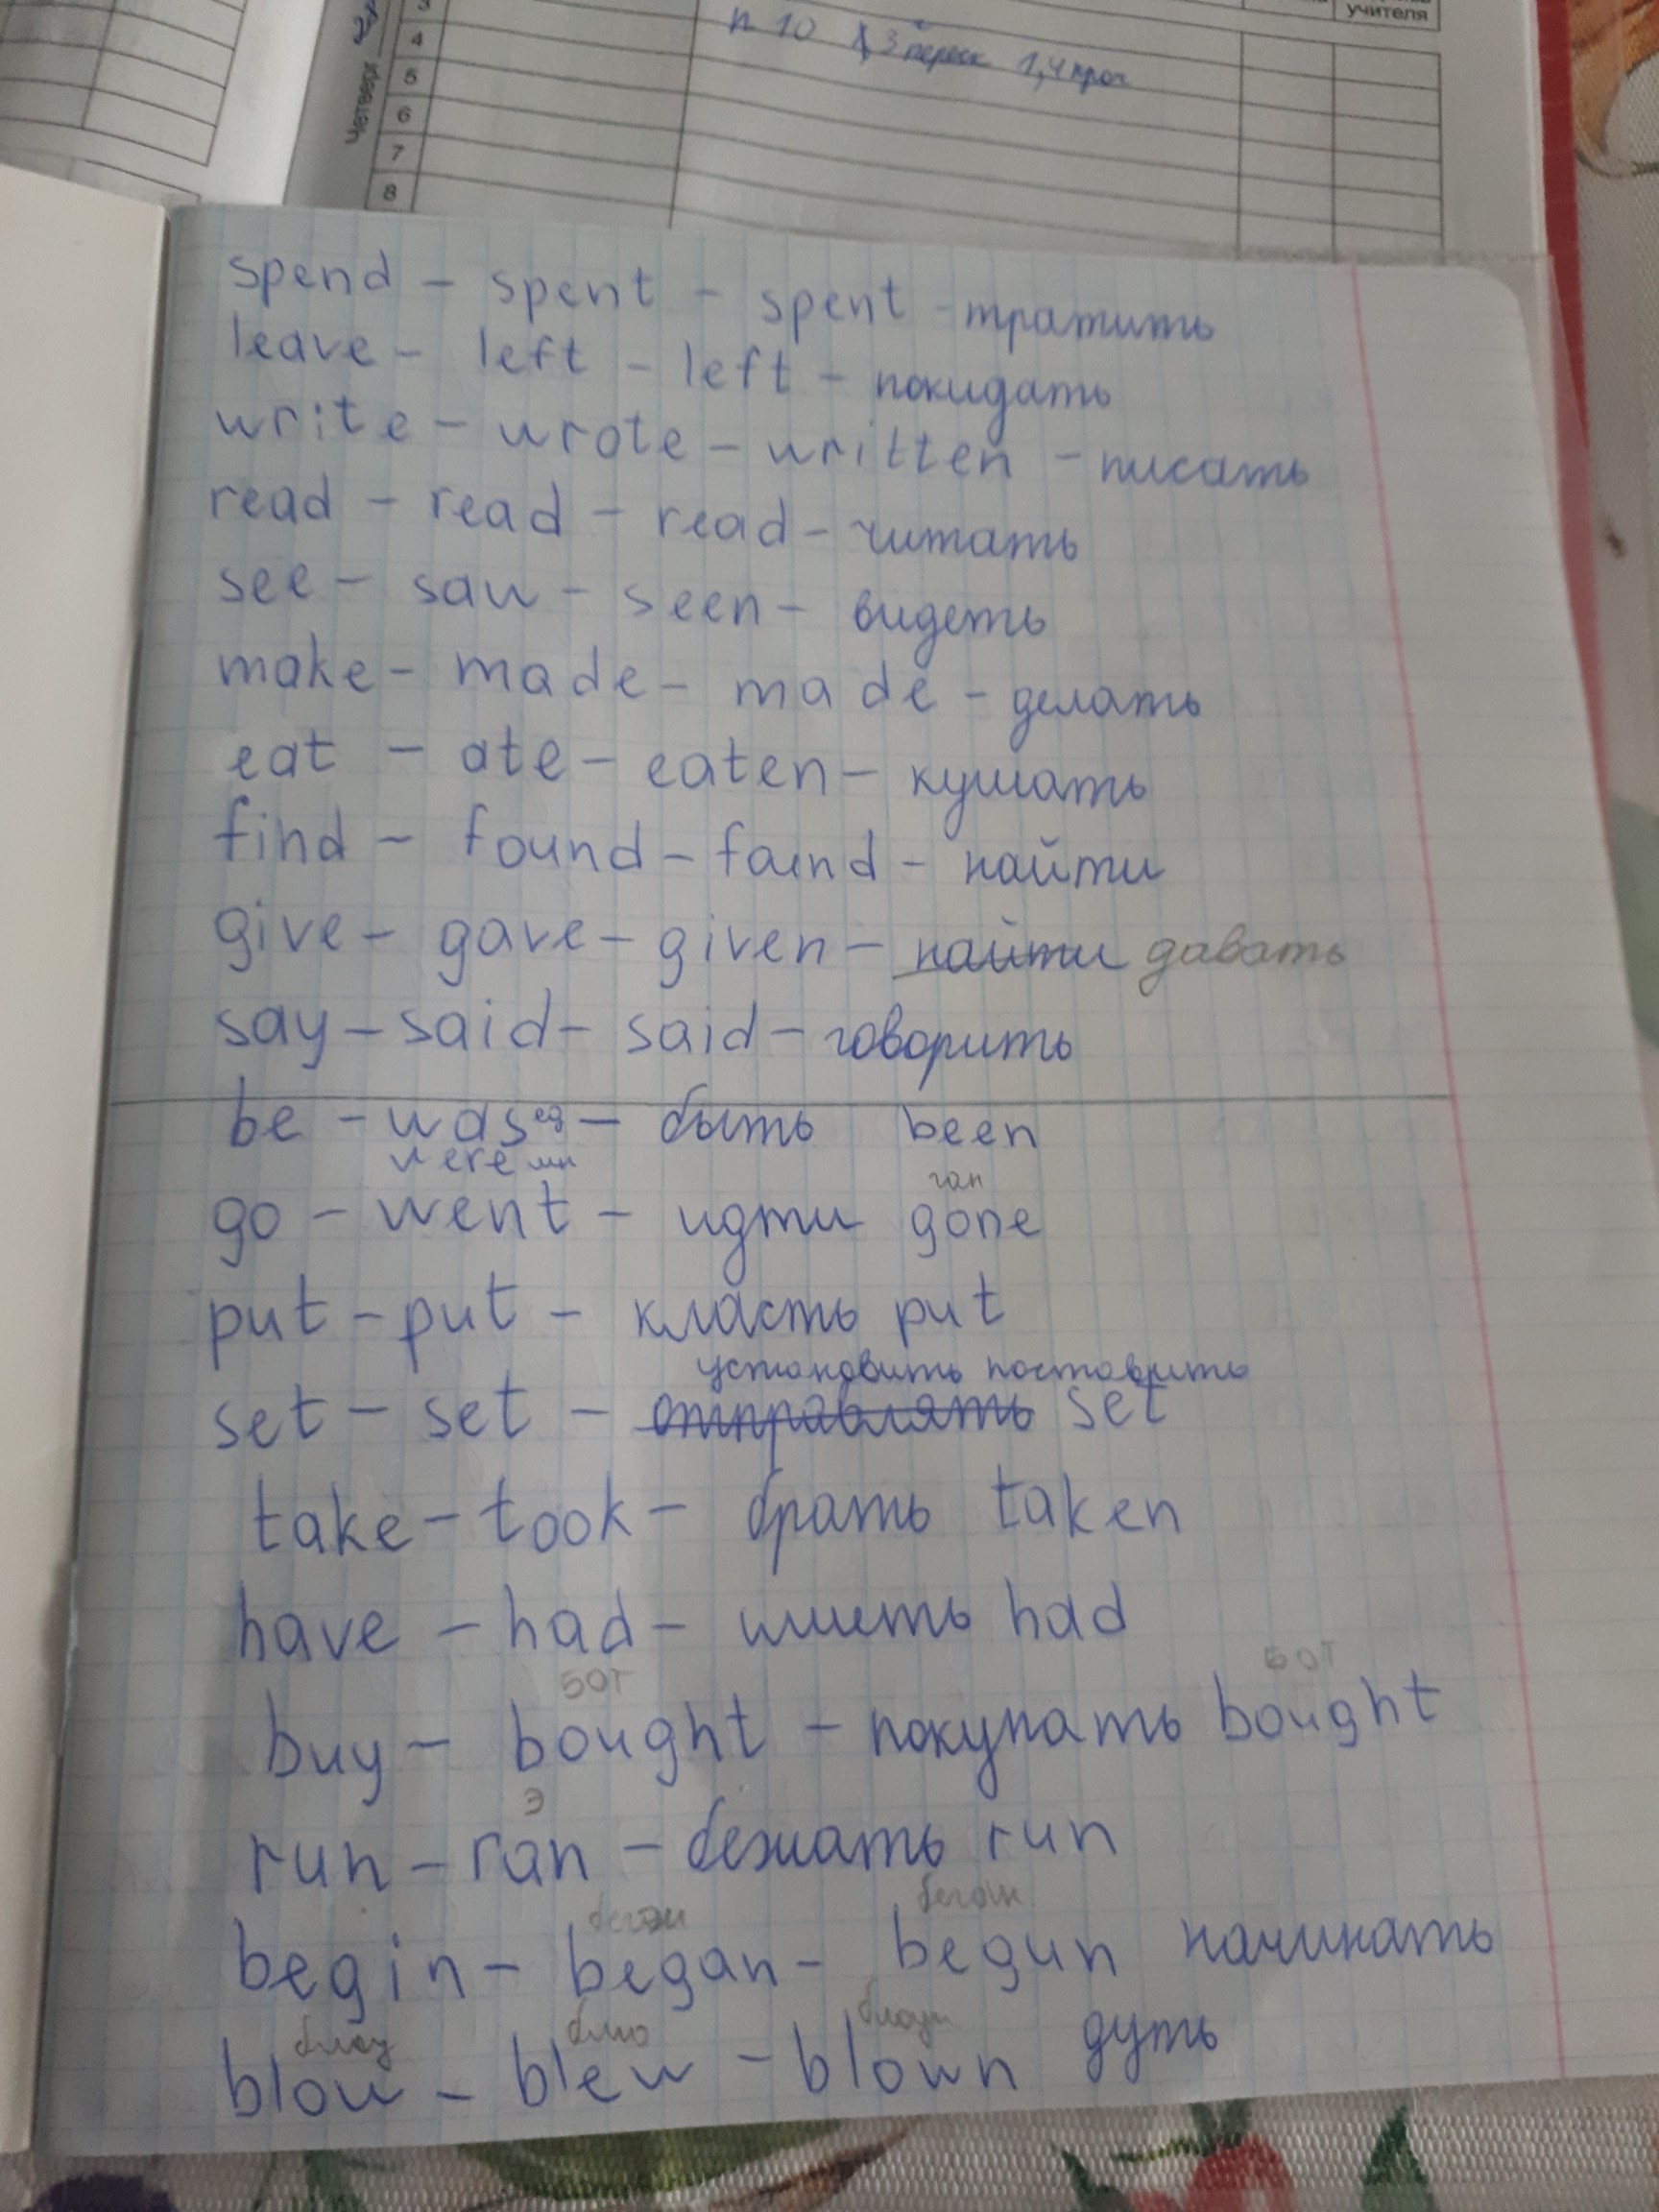 учителя
3
4 п 10 § 3 переск 1,4 проч
5
6
7
8
Четверг
spend - spent - spent - тратить
leave - left - left - покидать
write - wrote - written - писать
read - read - read - читать
see - saw - seen - видеть
make - made - made - делать
eat - ate - eaten - кушать
find - found - faund - найти
give - gave - given - найти давать
say - said - said - говорить
be - was ед - быть been
were мн
ган
go - went - идти gone
put - put - класть put
установить поставить
set - set - отправлять set
take - took - брать taken
have - had - иметь had
БОТ БОТ
buy - bought - покупать bought
э
run - ran - бежать run
бегэн беган
begin - began - begun начинать
блоу блю блоун
blow - blew - blown дуть